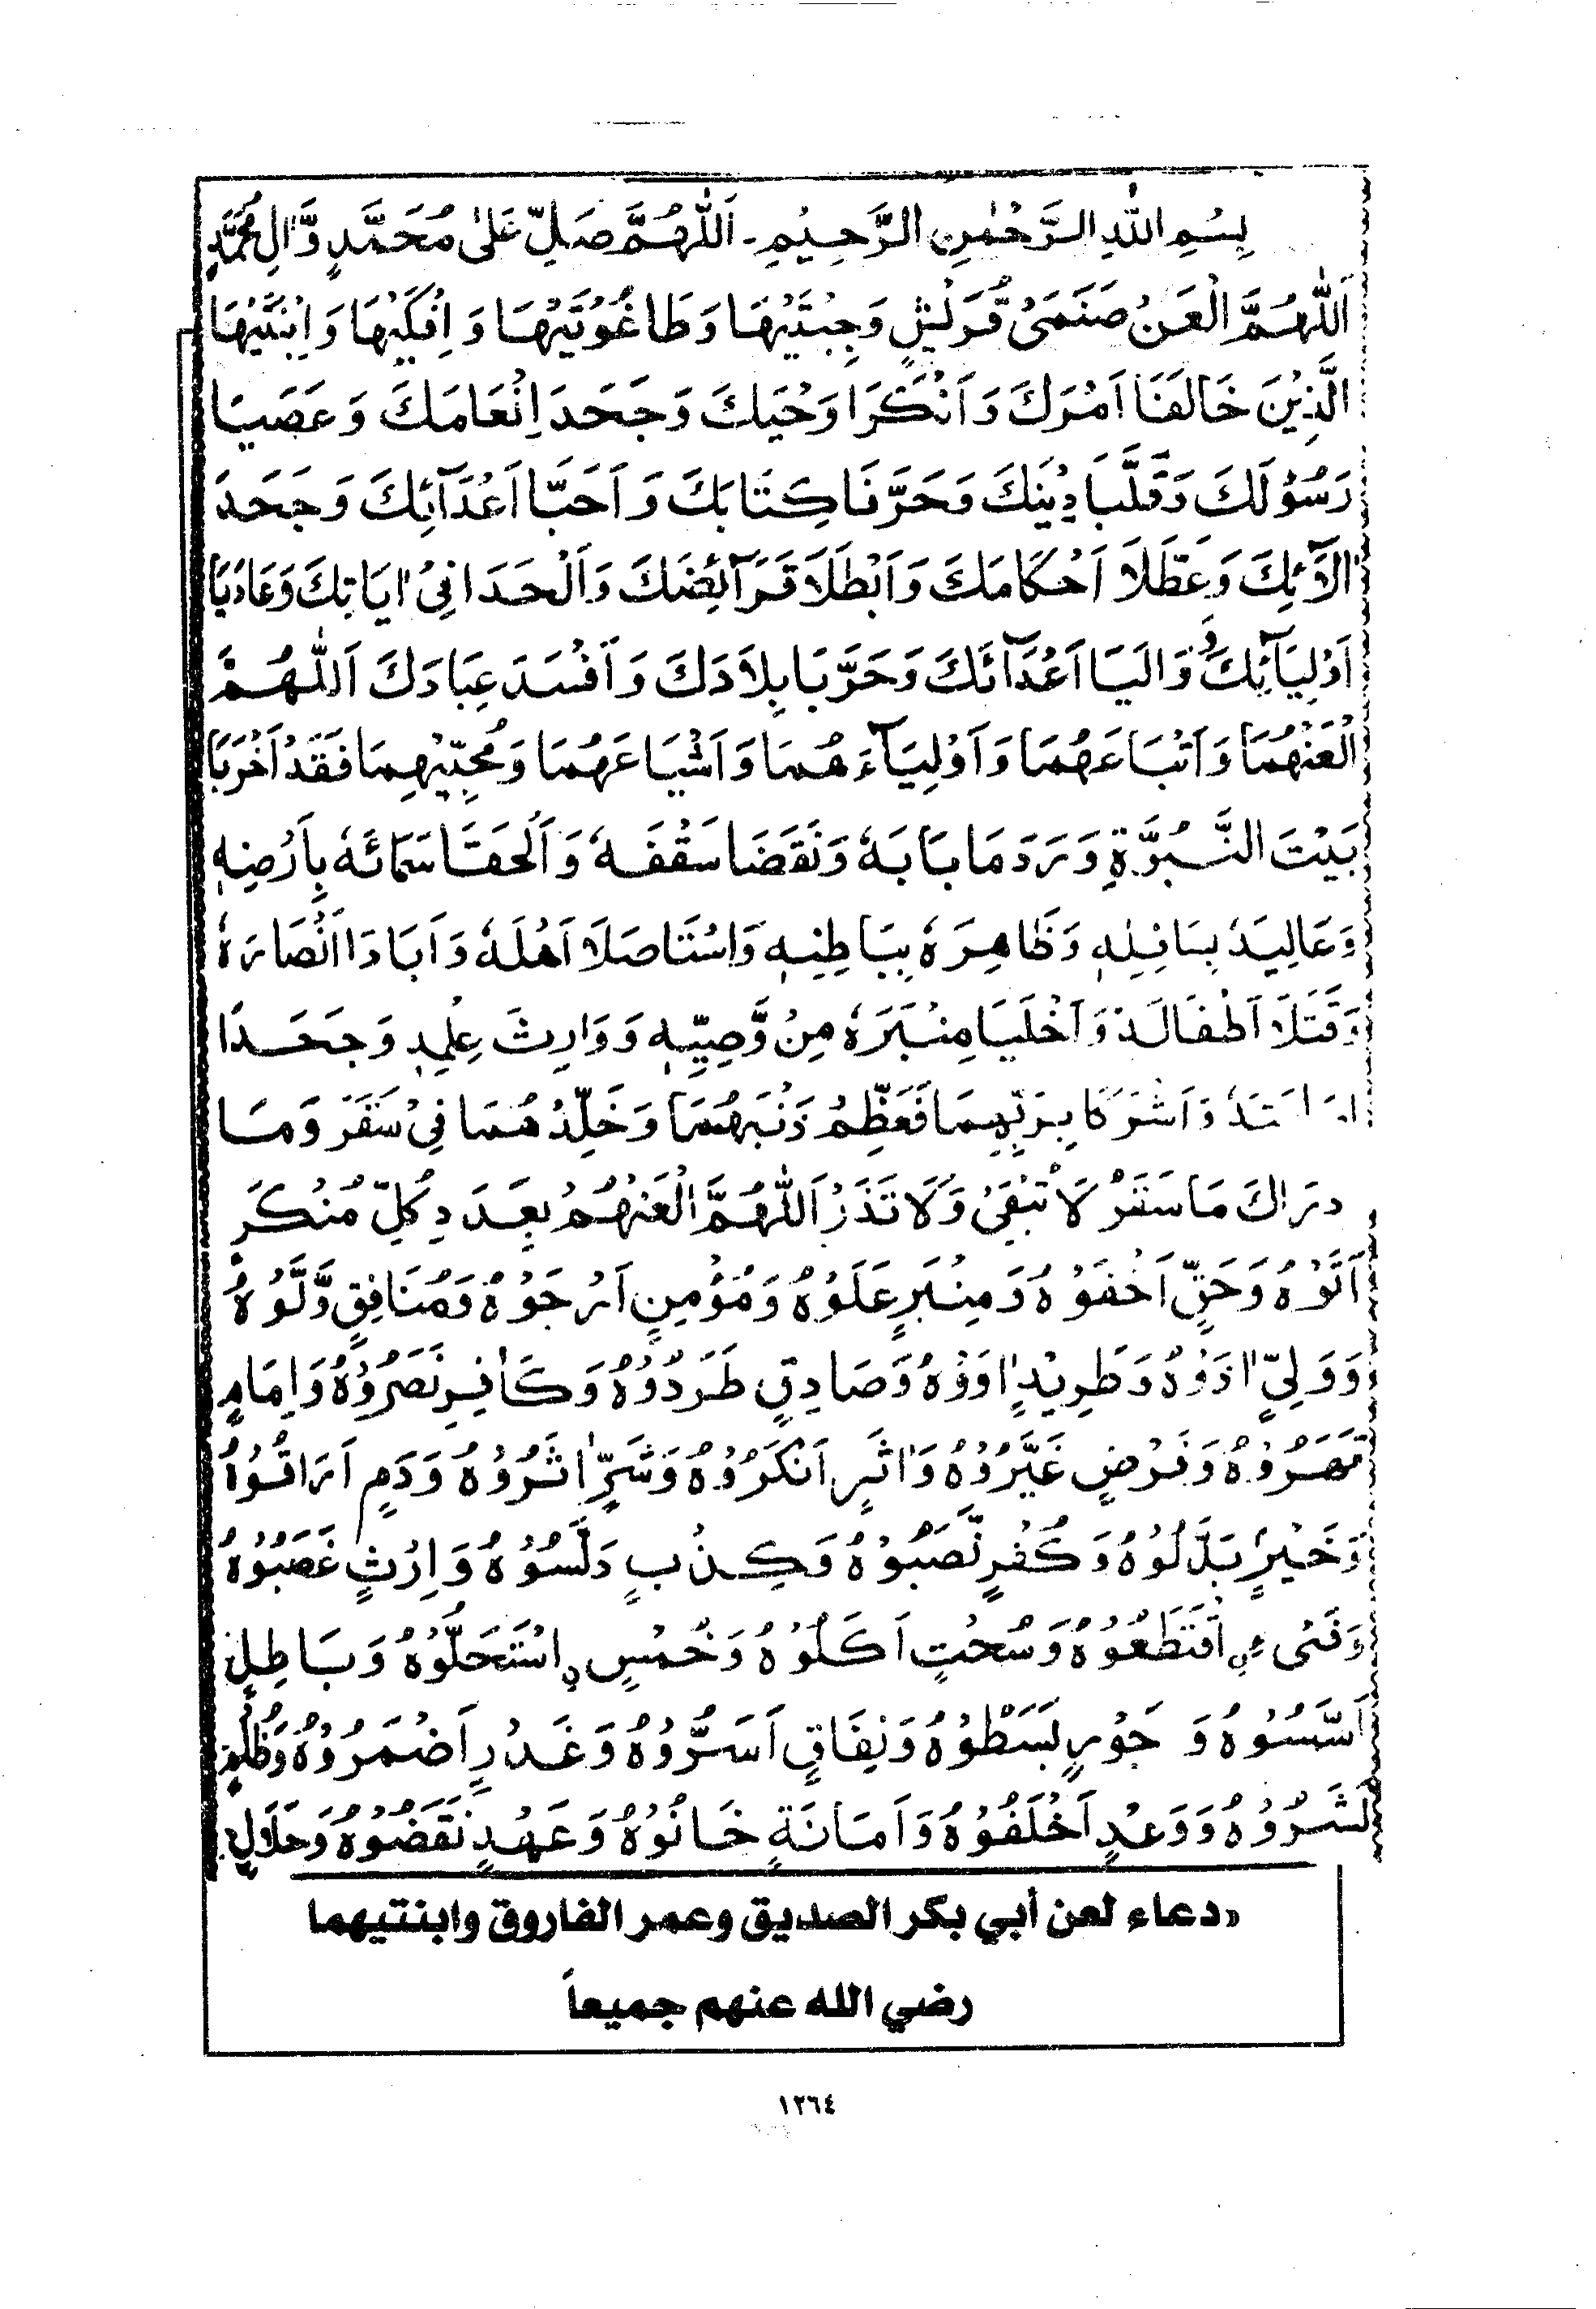 بِسْمِ اللّٰهِ الرَّحْمٰنِ الرَّحِيْمِ۔ اَللّٰهُمَّ صَلِّ عَلٰى مُحَمَّدٍ وَّاٰلِ مُحَمَّدٍ
اَللّٰهُمَّ الْعَنْ صَنَمَىْ قُرَيْشٍ وَجِبْتَيْهَا وَطَاغُوْتَيْهَا وَاِفْكَيْهَا وَابْنَتَيْهَا
الَّذِيْنَ خَالَفَا اَمْرَكَ وَاَنْكَرَا وَحْيَكَ وَجَحَدَ اِنْعَامَكَ وَعَصَيَا
رَسُوْلَكَ وَقَلَّبَا دِيْنَكَ وَحَرَّفَا كِتَابَكَ وَاَحَبَّا اَعْدَآئِكَ وَجَحَدَ
اٰلَآئِكَ وَعَطَّلَا اَحْكَامَكَ وَاَبْطَلَا فَرَآئِضَكَ وَاَلْحَدَا فِىْ اٰيَاتِكَ وَعَادَيَا
اَوْلِيَآئِكَ وَوَالَيَا اَعْدَآئَكَ وَخَرَّبَا بِلَادَكَ وَاَفْسَدَ عِبَادَكَ اَللّٰهُمَّ
الْعَنْهُمَا وَاَتْبَاعَهُمَا وَاَوْلِيَآءَهُمَا وَاَشْيَاعَهُمَا وَمُحِبِّيْهِمَا فَقَدْ اَخْرَبَا
بَيْتَ النَّبُوَّةِ وَرَدَمَا بَابَهٗ وَنَقَضَا سَقْفَهٗ وَاَلْحَقَا سَمَائَهٗ بِاَرْضِهٖ
وَعَالِيَهٗ بِسَافِلِهٖ وَظَاهِرَهٗ بِبَاطِنِهٖ وَاسْتَاصَلَا اَهْلَهٗ وَاَبَادَا اَنْصَارَهٗ
وَقَتَلَا اَطْفَالَهٗ وَاَخْلَيَا مِنْبَرَهٗ مِنْ وَّصِيِّهٖ وَوَارِثَ عِلْمِهٖ وَجَحَدَا
وَاَشْرَكَا بِرَبِّهِمَا فَعَظِّمْ ذَنْبَهُمَا وَخَلِّدْهُمَا فِىْ سَقَرَ وَمَا
دْرَاكَ مَا سَقَرُ لَا تُبْقِىْ وَلَا تَذَرُ اَللّٰهُمَّ الْعَنْهُمْ بِعَدَدِ كُلِّ مُنْكَرٍ
اَتَوْهُ وَحَقٍّ اَخْفَوْهُ وَمِنْبَرٍ عَلَوْهُ وَمُؤْمِنٍ اَرْجَوْهُ وَمُنَافِقٍ وَّلَّوْهُ
وَوَلِيٍّ اٰذَوْهُ وَطَرِيْدٍ اٰوَوْهُ وَصَادِقٍ طَرَدُوْهُ وَكَافِرٍ نَصَرُوْهُ وَاِمَامٍ
قَهَرُوْهُ وَفَرْضٍ غَيَّرُوْهُ وَاَثَرٍ اَنْكَرُوْهُ وَشَرٍّ اٰثَرُوْهُ وَدَمٍ اَرَاقُوْهُ
وَخَيْرٍ بَدَّلُوْهُ وَكُفْرٍ نَّصَبُوْهُ وَكِذْبٍ دَلَّسُوْهُ وَاِرْثٍ غَصَبُوْهُ
وَفَىْءٍ اقْتَطَعُوْهُ وَسُحْتٍ اَكَلُوْهُ وَخُمْسٍ اسْتَحَلُّوْهُ وَبَاطِلٍ
اَسَّسُوْهُ وَ جَوْرٍ بَسَطُوْهُ وَنِفَاقٍ اَسَرُّوْهُ وَغَدْرٍ اَضْمَرُوْهُ وَظُلْمٍ
نَشَرُوْهُ وَوَعْدٍ اَخْلَفُوْهُ وَاَمَانَةٍ خَانُوْهُ وَعَهْدٍ نَقَضُوْهُ وَحَلَالٍ
«دعاء لعن أبي بكر الصديق وعمر الفاروق وابنتيهما
رضي الله عنهم جميعاً
١٢٦٤